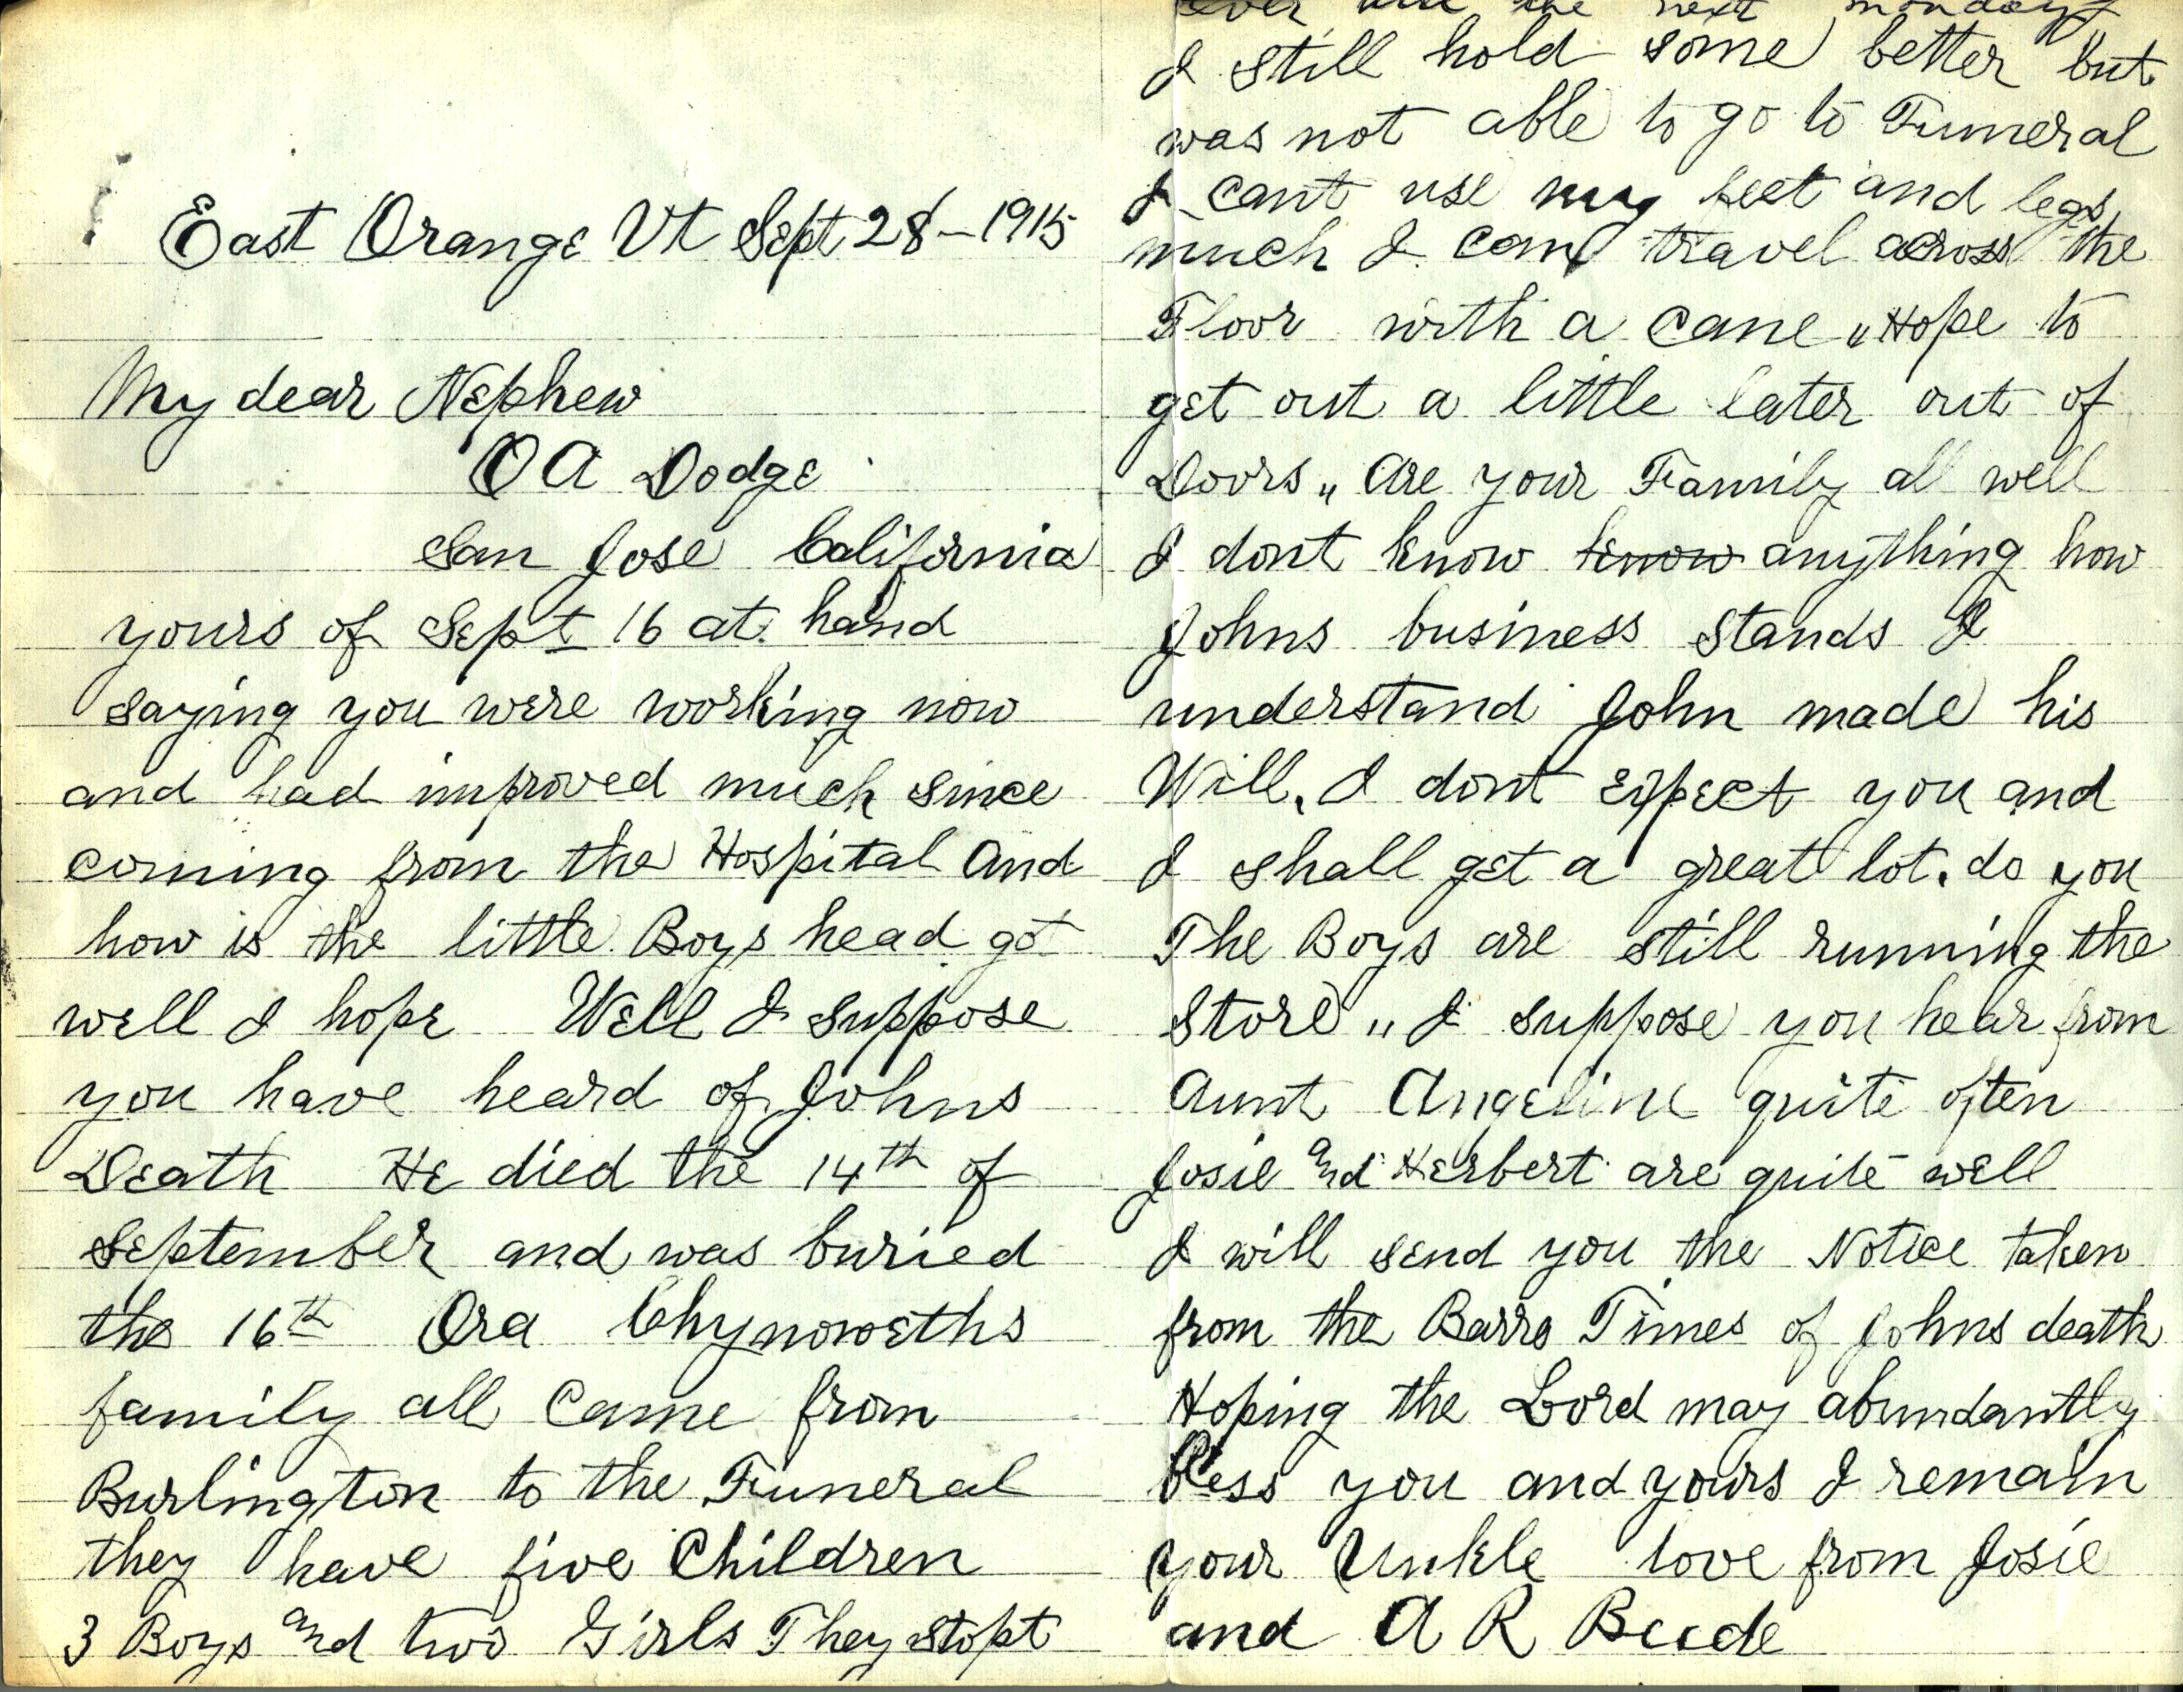 East Orange Vt Sept 28 - 1915
My dear Nephew
O A Dodge
San Jose California
yours of Sept 16 at hand
saying you were working now
and had improved much since
coming from the Hospital And
how is the little Boys head got
well I hope Well I suppose
you have heard of Johns
Death He died the 14th of
September and was buried
the 16th Ora Chynoweths
family all came from
Burlington to the Funeral
they have five Children
3 Boys and two Girls They stopt
over the next monday
I still hold some better but
was not able to go to Funeral
I cant use my feet and legs
much I can travel across the
Floor with a cane „ Hope to
get out a little later out of
Doors „ Are your Family all well
I dont know know anything how
Johns business stands I
understand John made his
Will, I dont expect you and
I shall get a great lot. do you
The Boys are still running the
Store „ I suppose you hear from
Aunt Angeline quite often
Josie and Herbert are quite well
I will send you the Notice taken
from the Barre Times of Johns death
Hoping the Lord may abundantly
bless you and yours I remain
your Unkle love from Josie
and A R Beede